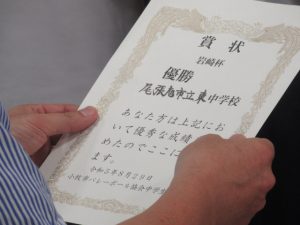 賞状
岩崎杯
優勝
尾張旭市立東中学校
あなた方は上記にお
いて優秀な成績
めたのでここに
ます。
令和5年8月29日
小牧市バレーボール協会中学生